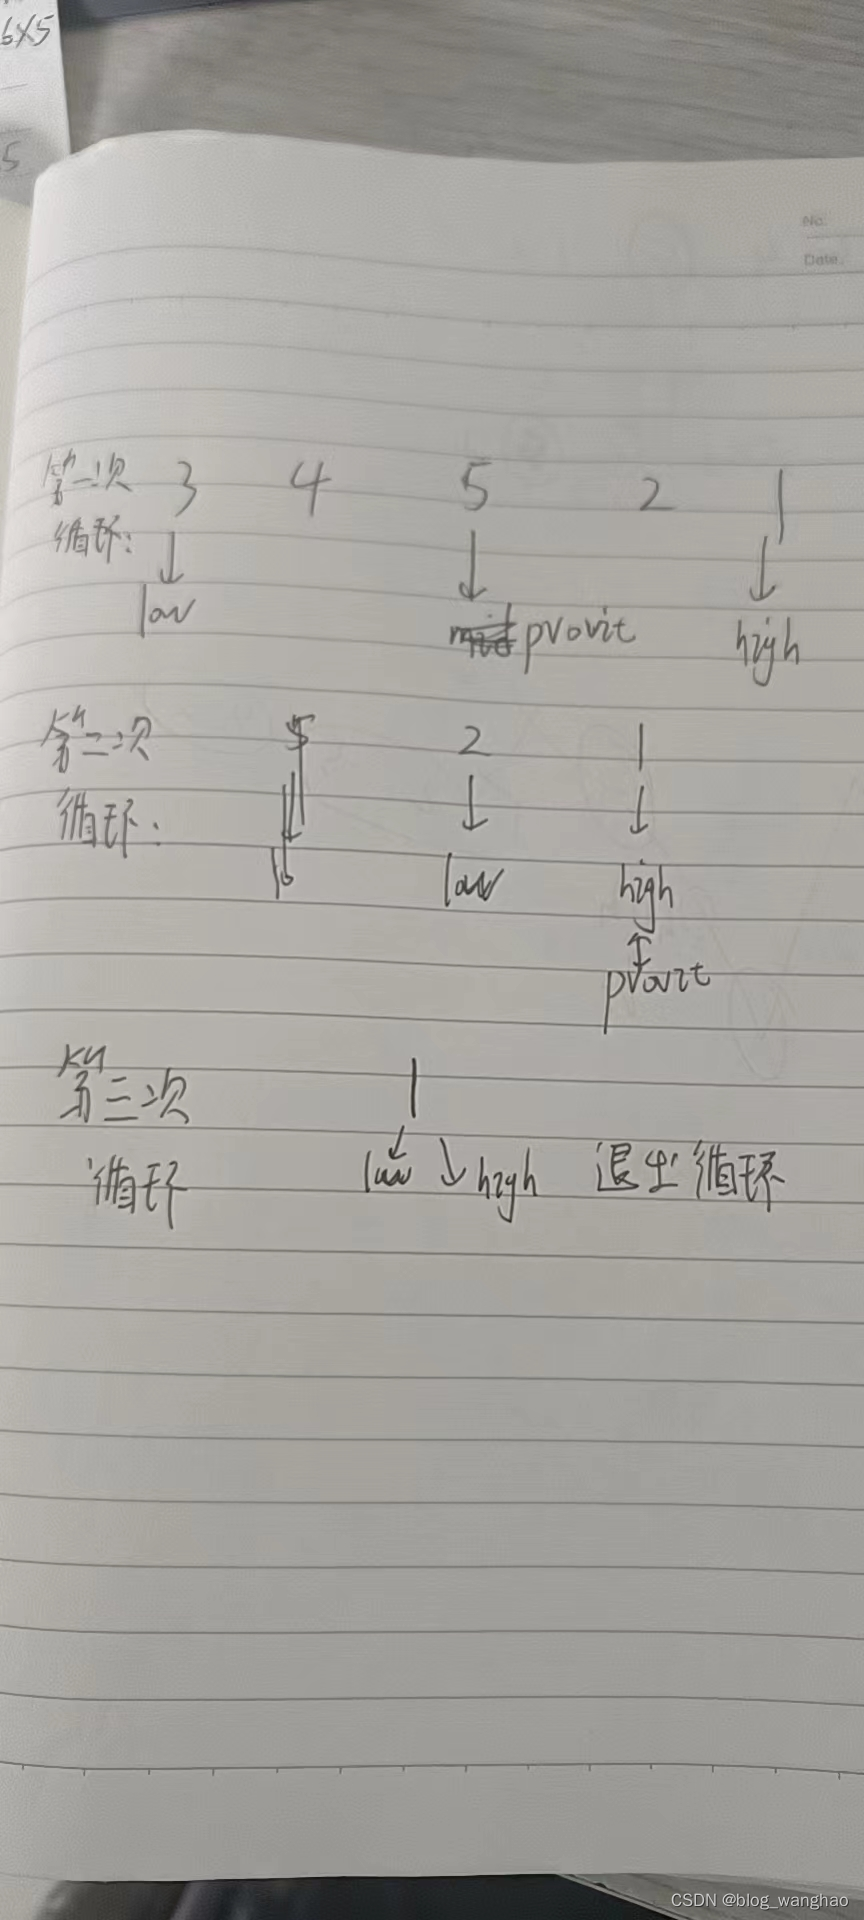 6×5
5
No.
Date.
第一次 3 4 5 2 1
循环:
low provit high
第二次 5 2 1
循环:
lo low high
provit
第三次 1
循环 low high 退出循环
CSDN @blog_wanghao